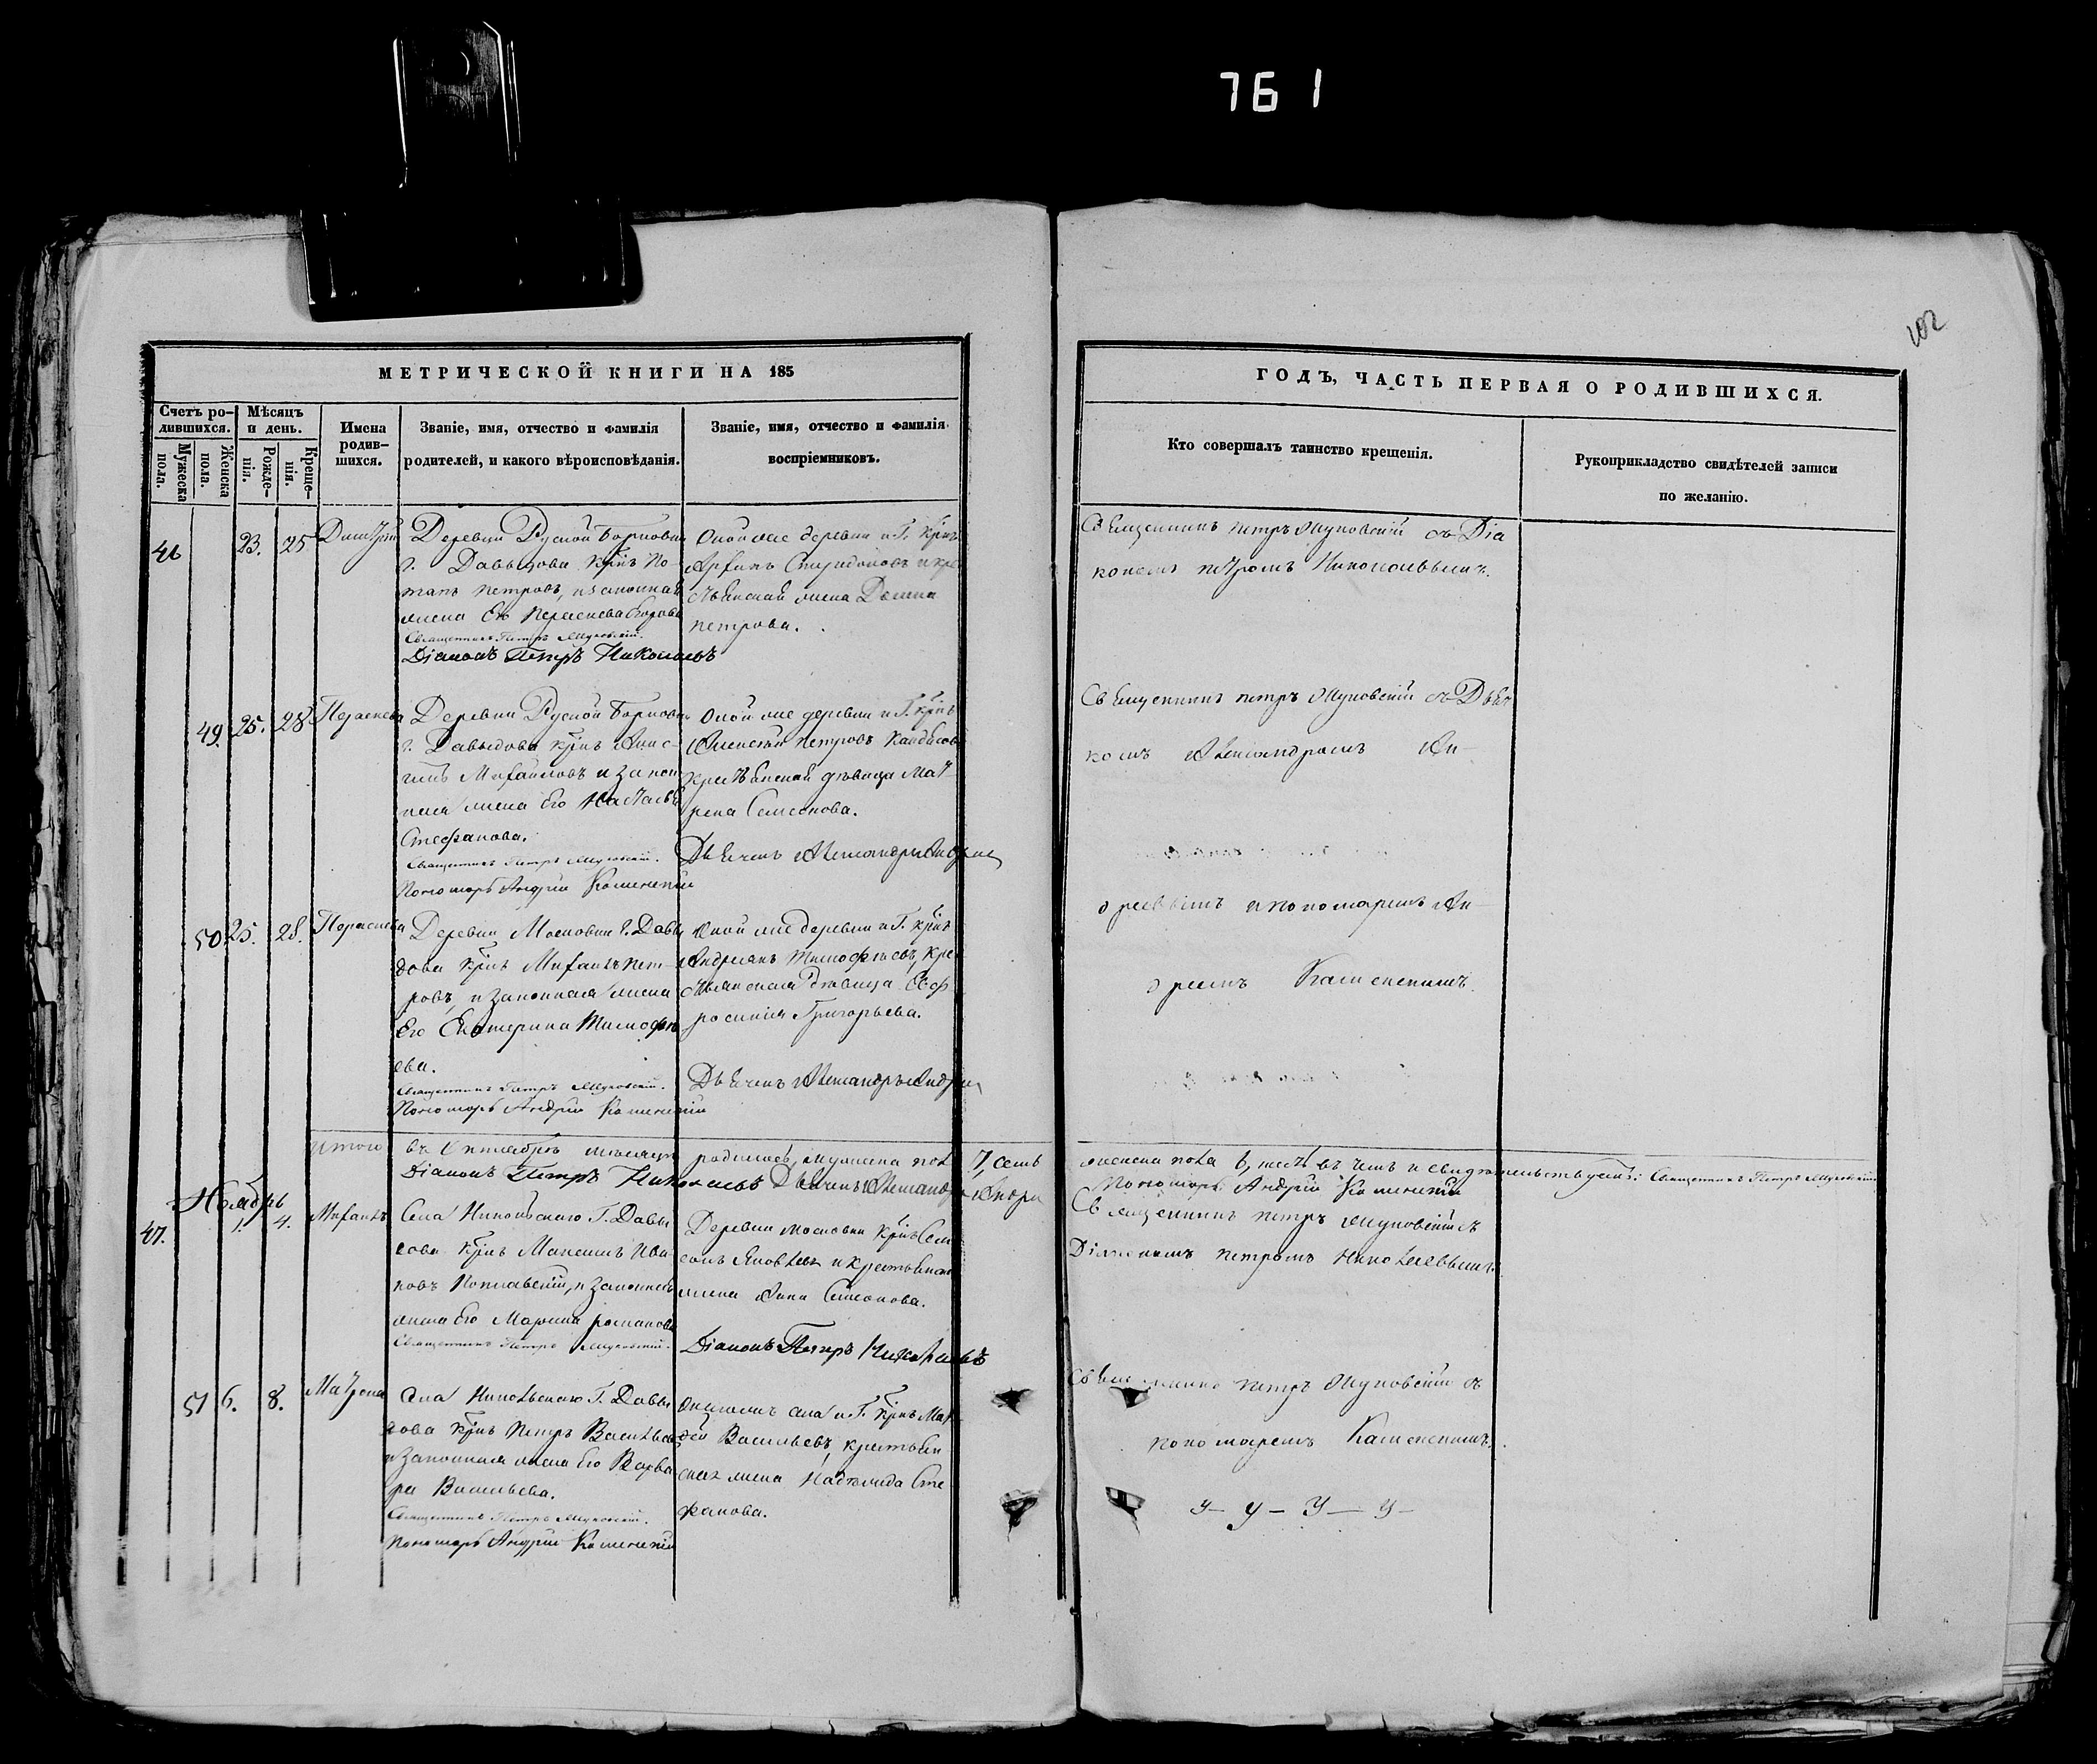 761
102
МЕТРИЧЕСКОЙ КНИГИ НА 185
ГОДЪ, ЧАСТЬ ПЕРВАЯ О РОДИВШИХСЯ.
Счетъ ро-
дившихся.
Мужеска
пола.
Женска
пола.
Мѣсяцъ
и день.
Рожде-
нія.
Креще-
нія.
Имена
родив-
шихся.
Званіе, имя, отчество и фамилія
родителей, и какого вѣроисповѣданія.
Званіе, имя, отчество и фамилія
воспріемниковъ.
Кто совершалъ таинство крещенія.
Рукоприкладство свидѣтелей записи
по желанію.
46 23. 25 Димитрій
Деревни Руской
г. Давыдова крнъ По-
тапъ Петровъ, и законная
жена Ея
Священникъ Петръ
Діаконъ Петръ Николаевъ
Оной же деревни и Г. крнъ
Спиридоновъ и кре
жена Домна
Петрова.
Священникъ Петръ съ Діа
кономъ Петромъ Николаевымъ.
49. 25. 28 Параскева
Деревни Руской
г. Давыдова крнъ Анис-
имъ Михайловъ и закон
ная жена Его Настасья
Стефанова.
Священникъ Петръ
Пономарь Андрей Каменскій
Оной же деревни и Г. крнъ
Алексѣй Петровъ
крестьянская дѣвица Мат-
рена Семенова.
Дьячекъ Александръ Андрее
Священникъ Петръ съ Дьяч
комъ Александромъ Ан-
дреевымъ и пономаремъ Ан-
дреемъ Каменскимъ.
50 25. 28. Параскева
Деревни Московки г. Давы
дова крнъ Михаилъ Пет-
ровъ, и законная жена
Его Екатерина Тимофѣ
ева.
Священникъ Петръ
Пономарь Андрей Каменскій
Оной же деревни и Г. крнъ
Андреянъ Тимофѣевъ, кре
стьянская дѣвица Евф
росинія Григорьева.
Дьячекъ Александръ Андрее
Итого въ Октябрѣ мѣсяцѣ родилось, мужеска пола 7, семь
женска пола 6, шесть въ чемъ и свидѣтельствуемъ: Священникъ Петръ
Діаконъ Петръ Николаевъ Дьячекъ Александръ Андре
Пономарь Андрей Каменскій
Ноябрь
47. 1. 4. Михаилъ
Села Никольскаго Г. Давы
дова крнъ Максимъ Ива
новъ и законная
жена Его Марина Романова
Священникъ Петръ
Деревни Московки крнъ Сем
енъ Яковлевъ и крестьянская
жена Анна Семенова.
Діаконъ Петръ Николаевъ
Священникъ Петръ съ
Діакономъ Петромъ Николаевымъ.
51 6. 8. Матрона
Села Никольскаго Г. Давы
дова крнъ Петръ Васильевъ
и законная жена Его Варва
ра Васильева.
Священникъ Петръ
Пономарь Андрей Каменскій
села и Г. крнъ Мат
Васильевъ, крестьян
ская жена Надежда Сте
фанова.
Священникъ Петръ съ
пономаремъ Каменскимъ.